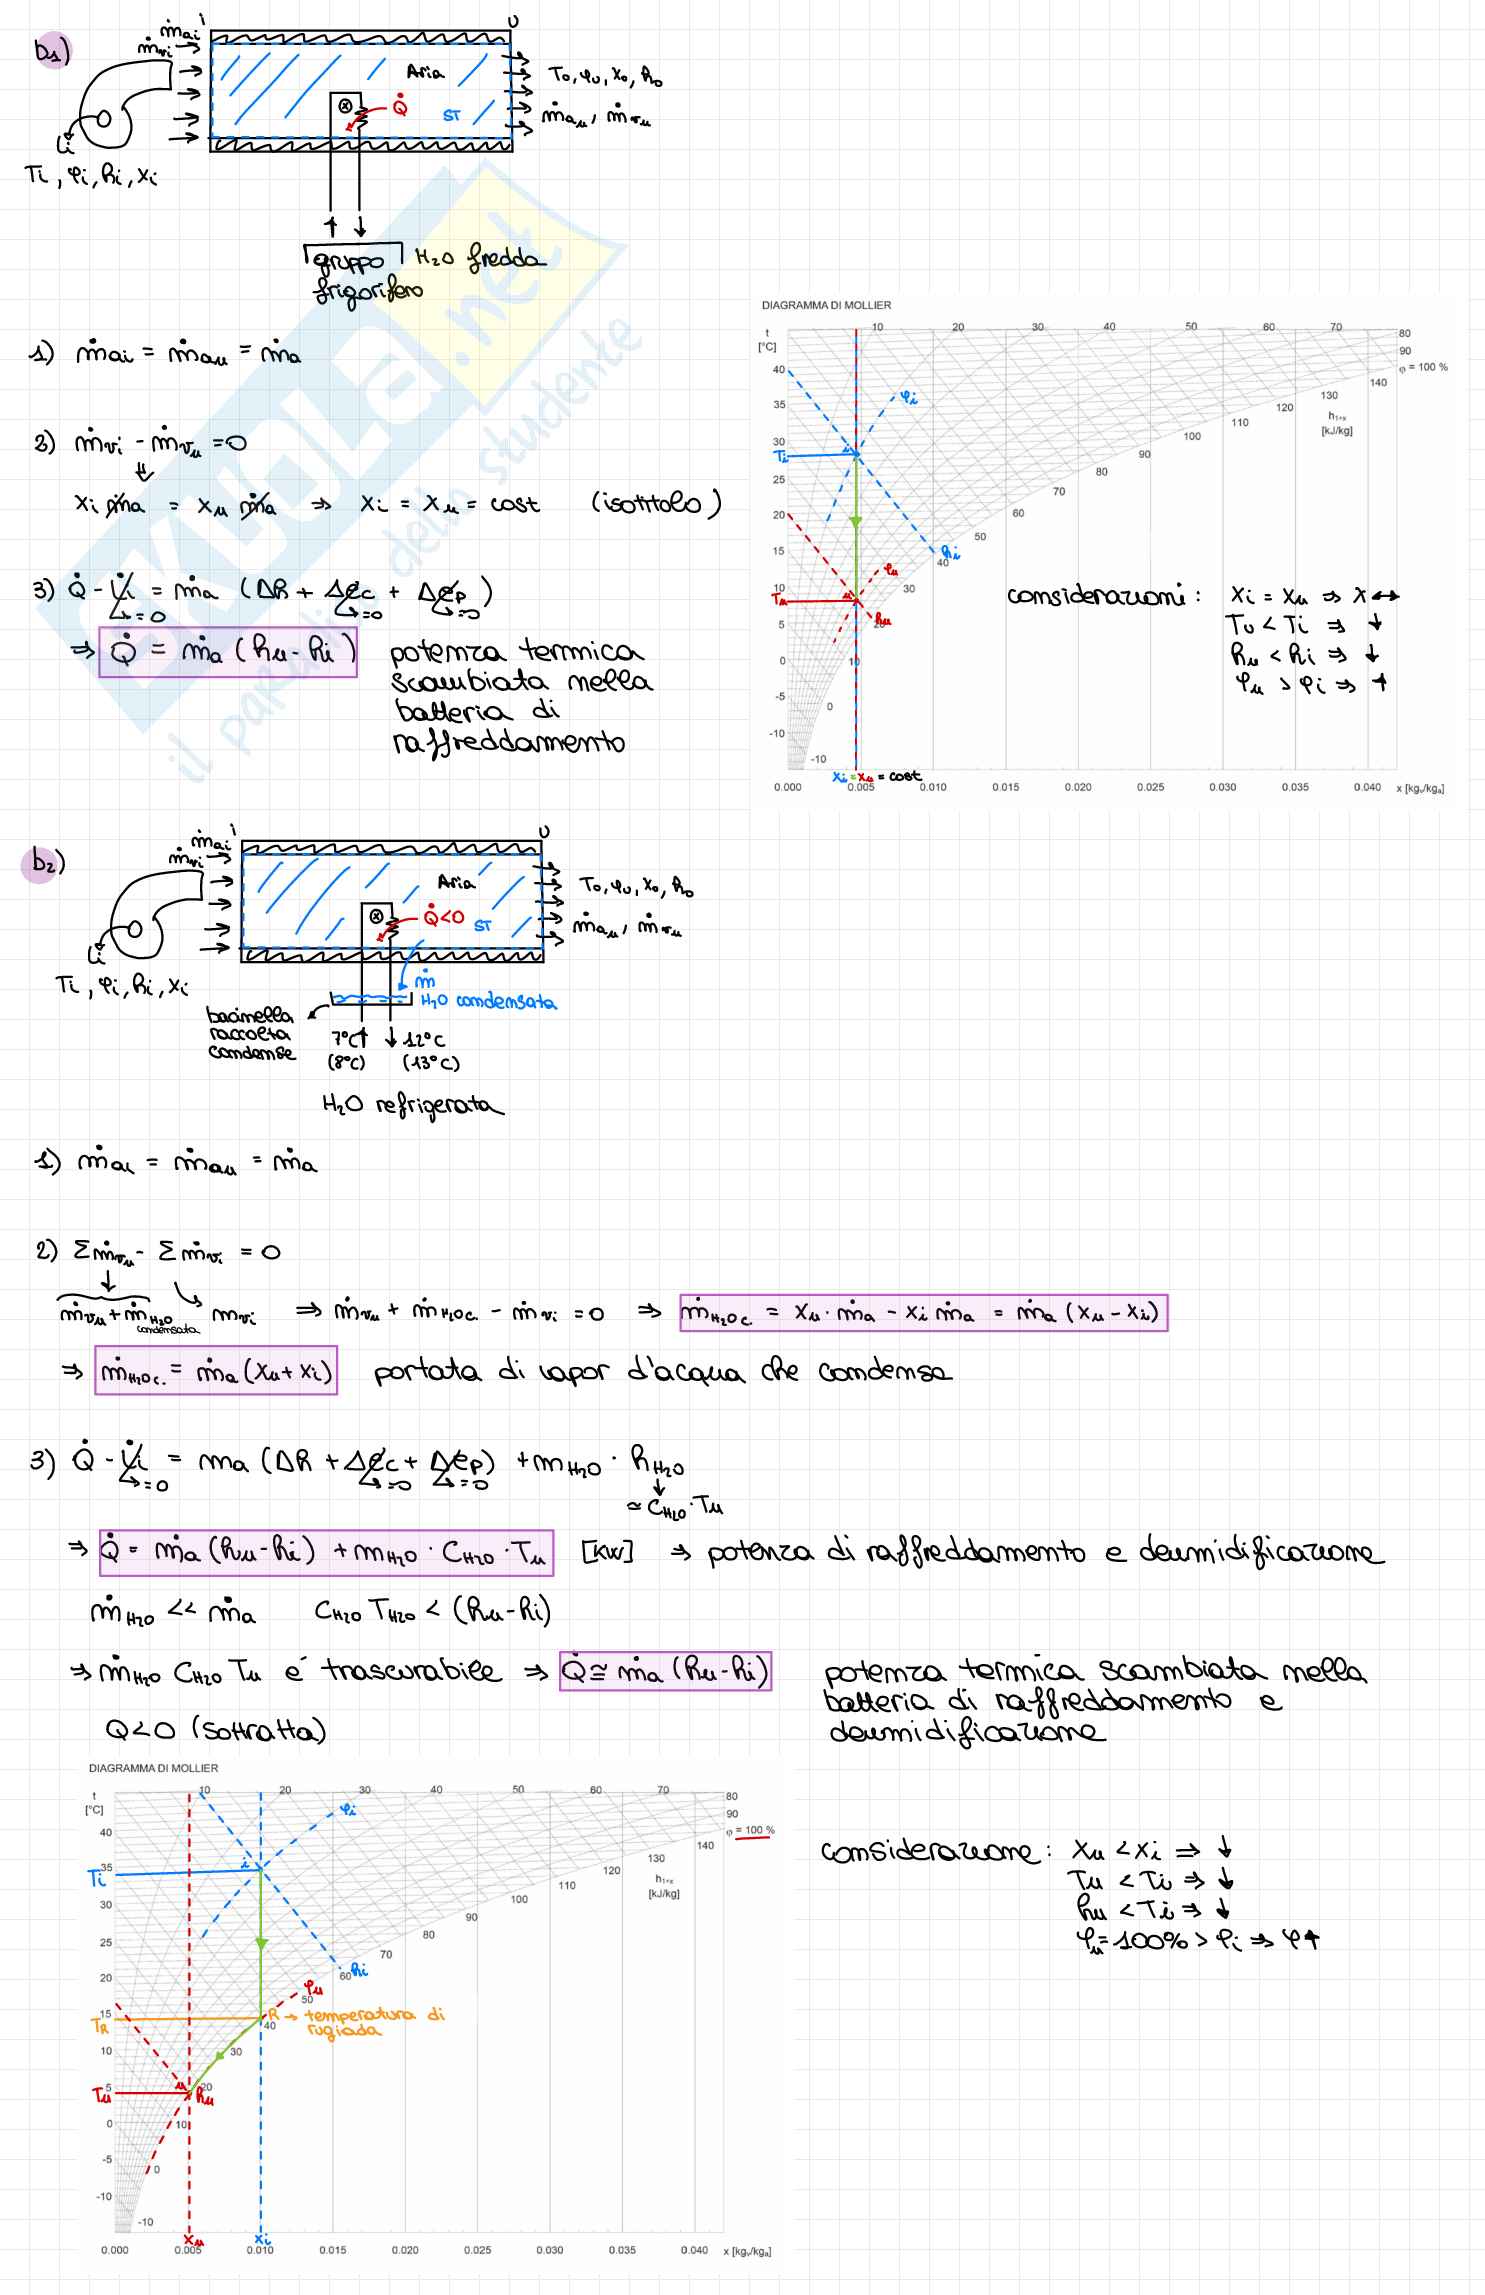 b1)
i
U
ṁai
ṁvi
Aria
Q̇
ST
To, φu, xo, ho
ṁau, ṁvu
Li
Ti, φi, hi, xi
gruppo frigorifero
H2O fredda
1) ṁai = ṁau = ṁa
2) ṁvi - ṁvu = 0
⇓
xi ṁa = xu ṁa ⇒ xi = xu = cost (isotitolo)
3) Q̇ - L̇i = ṁa (Δh + Δec + Δep)
↳=0 ↳=0 ↳=0
⇒ Q̇ = ṁa (hu - hi)
potenza termica
scambiata nella
batteria di
raffreddamento
DIAGRAMMA DI MOLLIER
t
[°C]
10 20 30 40 50 60 70 80
90
φ = 100 %
140
130
120
110
100
90
80
70
60
50
40
30
20
10
0
-10
h1+x
[kJ/kg]
40
35
30
25
20
15
10
5
0
-5
-10
Ti
i
φi
hi
Tu
u
φu
hu
xi = xu = cost
0.000 0.005 0.010 0.015 0.020 0.025 0.030 0.035 0.040 x [kgv/kga]
considerazioni: xi = xu ⇒ x ↔
Tu < Ti ⇒ ↓
hu < hi ⇒ ↓
φu > φi ⇒ ↑
b2)
i
U
ṁai
ṁvi
Aria
Q̇<0
ST
To, φu, xo, ho
ṁau, ṁvu
Li
Ti, φi, hi, xi
ṁ
H2O condensata
bacinella
raccolta
condense
7°C ↑ ↓ 12°C
(8°C) (13°C)
H2O refrigerata
1) ṁai = ṁau = ṁa
2) Σṁvu - Σṁvi = 0
ṁvu + ṁH2O condensata
mvi ⇒ ṁvu + ṁH2Oc. - ṁvi = 0 ⇒ ṁH2Oc. = xu · ṁa - xi ṁa = ṁa (xu - xi)
⇒ ṁH2Oc. = ṁa (xu + xi) portata di vapor d'acqua che condensa
3) Q̇ - L̇i = ma (Δh + Δec + Δep) + mH2O · hH2O
↳=0 ↳=0 ↳=0
≃ CH2O · Tu
⇒ Q̇ = ṁa (hu - hi) + mH2O · CH2O · Tu [KW] ⇒ potenza di raffreddamento e deumidificazione
ṁH2O << ṁa CH2O TH2O < (hu - hi)
⇒ ṁH2O CH2O Tu é trascurabile ⇒ Q̇ ≅ ṁa (hu - hi)
potenza termica scambiata nella
batteria di raffreddamento e
deumidificazione
Q<0 (sottratta)
DIAGRAMMA DI MOLLIER
t
[°C]
10 20 30 40 50 60 70 80
90
φ = 100 %
140
130
120
110
100
90
80
70
60
50
40
30
20
10
0
-10
h1+x
[kJ/kg]
40
35
30
25
20
15
10
5
0
-5
-10
Ti
i
φi
hi
φu
TR
R → temperatura di
rugiada
Tu
u
hu
xu
xi
0.000 0.005 0.010 0.015 0.020 0.025 0.030 0.035 0.040 x [kgv/kga]
considerazione: xu < xi ⇒ ↓
Tu < Ti ⇒ ↓
hu < Ti ⇒ ↓
φu = 100% > φi ⇒ φ↑
SKUOLA.net
il paradiso dello studente